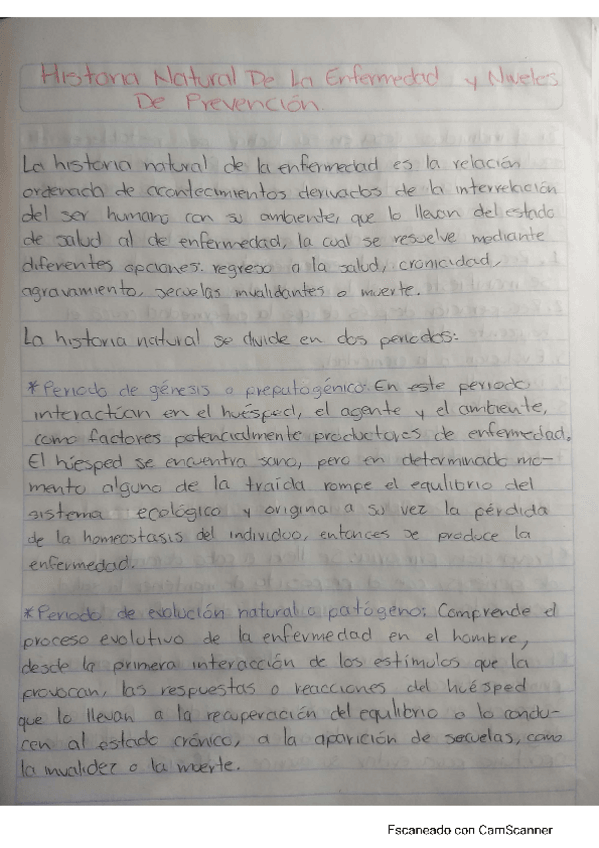 Historia Natural De La Enfermedad y Niveles
De Prevención.
La historia natural de la enfermedad es la relación
ordenada de acontecimientos derivados de la interrelación
del ser humano con su ambiente, que lo llevan del estado
de salud al de enfermedad, la cual se resuelve mediante
diferentes opciones. regreso a la salud, cronicidad,
agravamiento, secuelas invalidantes o muerte.
La historia natural se divide en dos periodos:
*Periodo de génesis o preputogénico: En este periodo
interactúan en el huésped, el agente y el ambiente,
como factores potencialmente productores de enfermedad.
El húesped se encuentra sano, pero en determinado mo-
mento alguno de la traída rompe el equlibrio del
sistema ecológico y origina a su vez la pérdida
de la homeostasis del individuo, entonces se produce la
enfermedad.
*Periodo de evolución natural o patógeno: Comprende el
proceso evolutivo de la enfermedad en el hombre,
desde la primera interacción de los estímulos que la
provocan, las respuestas o reacciones del huésped
que lo llevan a la recuperación del equlibrio o lo condu-
cen al estado crónico, a la aparición de secuelas, como
la invalidez o la muerte.
Escaneado con CamScanner